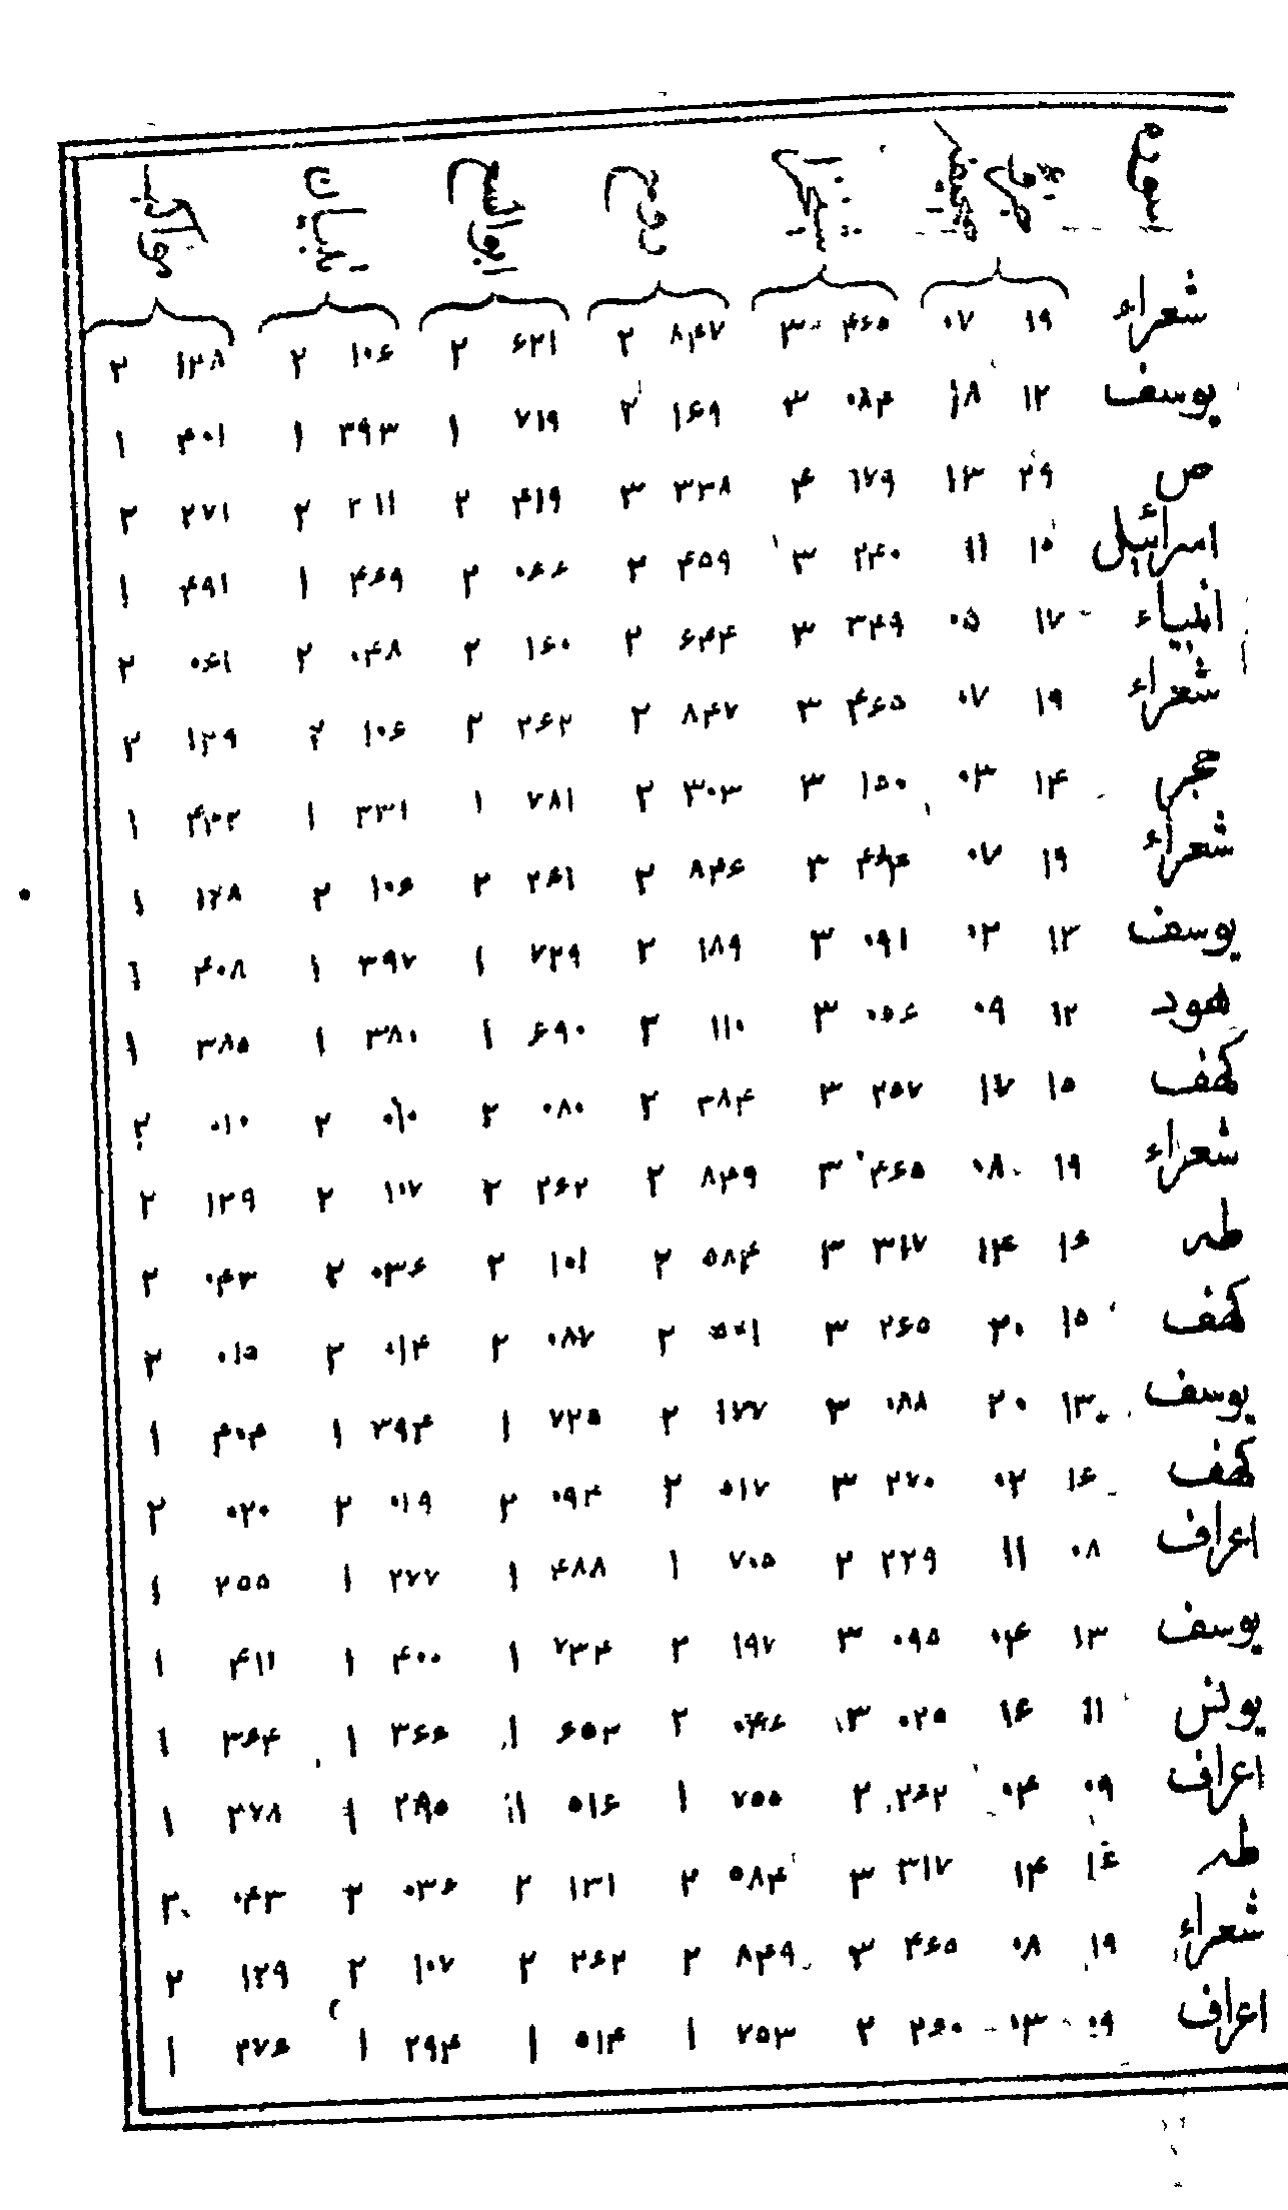 سوره
شعراء ۱۹ ۰۷ ۴۶۵ ۳ ۸۴۷ ۲ ۶۲۱ ۲ ۱۰۶ ۲ ۱۲۸ ۲
یوسف ۱۲ ۱۸ ۰۸۴ ۳ ۱۶۹ ۲ ۷۱۹ ۱ ۳۹۳ ۱ ۴۰۱ ۱
ص ۲۹ ۱۳ ۶۷۹ ۴ ۳۳۸ ۳ ۴۱۹ ۲ ۲۱۱ ۲ ۲۷۱ ۲
اسرائیل ۱۵ ۱۱ ۲۴۰ ۳ ۴۵۹ ۲ ۰۶۶ ۲ ۴۶۹ ۱ ۴۹۱ ۱
انبیاء ۱۷ ۰۵ ۳۴۹ ۳ ۶۴۴ ۲ ۱۶۰ ۲ ۰۴۸ ۲ ۰۶۱ ۲
شعراء ۱۹ ۰۷ ۴۶۵ ۳ ۸۴۷ ۲ ۲۶۲ ۲ ۱۰۶ ۲ ۱۲۹ ۲
حجر ۱۴ ۰۳ ۱۵۰ ۳ ۳۰۳ ۲ ۷۸۱ ۱ ۳۳۱ ۱ ۴۳۲ ۱
شعراء ۱۹ ۰۷ ۴۶۴ ۳ ۸۴۶ ۲ ۲۶۱ ۲ ۱۰۶ ۲ ۱۲۸ ۱
یوسف ۱۳ ۰۲ ۰۹۱ ۳ ۱۸۹ ۲ ۷۲۹ ۱ ۳۹۷ ۱ ۴۰۸ ۱
هود ۱۲ ۰۹ ۰۵۶ ۳ ۱۱۰ ۲ ۶۹۰ ۱ ۳۸۰ ۱ ۳۸۵ ۱
کهف ۱۵ ۱۷ ۲۵۷ ۳ ۴۸۴ ۲ ۰۸۰ ۲ ۰۱۰ ۲ ۰۱۰ ۲
شعراء ۱۹ ۰۸ ۴۶۵ ۳ ۸۴۹ ۲ ۲۶۲ ۲ ۱۰۷ ۲ ۱۲۹ ۲
طه ۱۶ ۱۴ ۳۱۷ ۳ ۵۸۴ ۲ ۱۰۱ ۲ ۰۳۶ ۲ ۰۴۳ ۲
کهف ۱۵ ۲۰ ۲۶۵ ۳ ۵۰۱ ۲ ۰۸۷ ۲ ۰۱۴ ۲ ۰۱۵ ۲
یوسف ۱۳ ۲۰ ۰۸۸ ۳ ۱۷۷ ۲ ۷۲۵ ۱ ۳۹۴ ۱ ۴۰۴ ۱
کهف ۱۶ ۰۲ ۲۷۰ ۳ ۵۱۷ ۲ ۰۹۴ ۲ ۰۱۹ ۲ ۰۲۰ ۲
اعراف ۰۸ ۱۱ ۲۲۹ ۲ ۷۰۵ ۱ ۴۸۸ ۱ ۲۷۷ ۱ ۲۵۵ ۱
یوسف ۱۳ ۰۴ ۰۹۵ ۳ ۱۹۷ ۲ ۷۳۴ ۱ ۴۰۰ ۱ ۴۱۱ ۱
یونس ۱۱ ۱۶ ۰۲۵ ۳ ۰۴۶ ۲ ۶۵۲ ۱ ۳۶۶ ۱ ۳۶۴ ۱
اعراف ۰۹ ۰۴ ۲۶۲ ۲ ۷۵۵ ۱ ۵۱۶ ۱ ۲۹۵ ۱ ۲۷۸ ۱
طه ۱۶ ۱۴ ۳۱۷ ۳ ۵۸۴ ۲ ۱۳۱ ۲ ۰۳۶ ۲ ۰۴۳ ۲
شعراء ۱۹ ۰۸ ۴۶۵ ۳ ۸۴۹ ۲ ۲۶۲ ۲ ۱۰۷ ۲ ۱۲۹ ۲
اعراف ۰۹ ۰۳ ۲۶۰ ۲ ۷۵۳ ۱ ۵۱۴ ۱ ۲۹۴ ۱ ۲۷۶ ۱